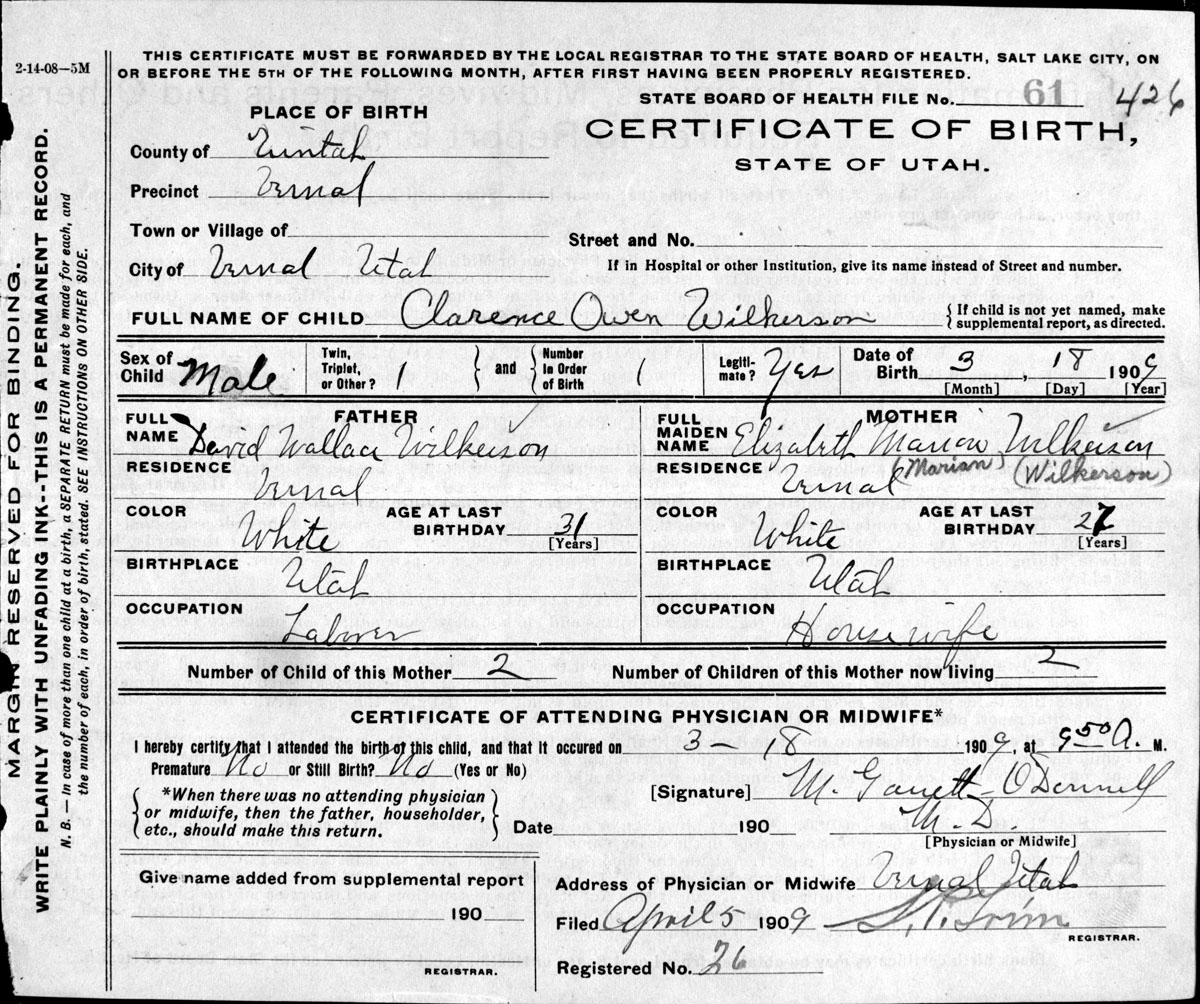 2-14-08—5M
THIS CERTIFICATE MUST BE FORWARDED BY THE LOCAL REGISTRAR TO THE STATE BOARD OF HEALTH, SALT LAKE CITY, ON
OR BEFORE THE 5TH OF THE FOLLOWING MONTH, AFTER FIRST HAVING BEEN PROPERLY REGISTERED.
STATE BOARD OF HEALTH FILE No. 61 426
PLACE OF BIRTH
CERTIFICATE OF BIRTH,
STATE OF UTAH.
County of Uintah
Precinct Vernal
Town or Village of
Street and No.
City of Vernal Utah
If in Hospital or other Institution, give its name instead of Street and number.
FULL NAME OF CHILD Clarence Owen Wilkerson
{ If child is not yet named, make
supplemental report, as directed.
Sex of Child Male
Twin, Triplet, or Other? 1
and
Number in Order of Birth 1
Legiti-mate? Yes
Date of Birth 3, 18 1909
[Month] [Day] [Year]
FATHER
FULL NAME David Wallace Wilkerson
RESIDENCE Vernal
COLOR White
AGE AT LAST BIRTHDAY 31 [Years]
BIRTHPLACE Utah
OCCUPATION Laborer
MOTHER
FULL MAIDEN NAME Elizabeth Marion Wilkerson
(Marian Wilkerson)
RESIDENCE Vernal
COLOR White
AGE AT LAST BIRTHDAY 27 [Years]
BIRTHPLACE Utah
OCCUPATION Housewife
Number of Child of this Mother 2
Number of Children of this Mother now living 2
CERTIFICATE OF ATTENDING PHYSICIAN OR MIDWIFE*
I hereby certify that I attended the birth of this child, and that it occured on 3 - 18 1909, at 9 50 A. M.
Premature No or Still Birth? No (Yes or No)
*When there was no attending physician
or midwife, then the father, householder,
etc., should make this return.
[Signature] M. Garrett-O'Donnell
M. D.
[Physician or Midwife]
Date 190
Give name added from supplemental report
190
REGISTRAR.
Address of Physician or Midwife Vernal Utah
Filed April 5 1909
REGISTRAR.
Registered No. 26
MARGIN RESERVED FOR BINDING.
WRITE PLAINLY WITH UNFADING INK--THIS IS A PERMANENT RECORD.
N. B.—In case of more than one child at a birth, a SEPARATE RETURN must be made for each, and
the number of each, in order of birth, stated. SEE INSTRUCTIONS ON OTHER SIDE.